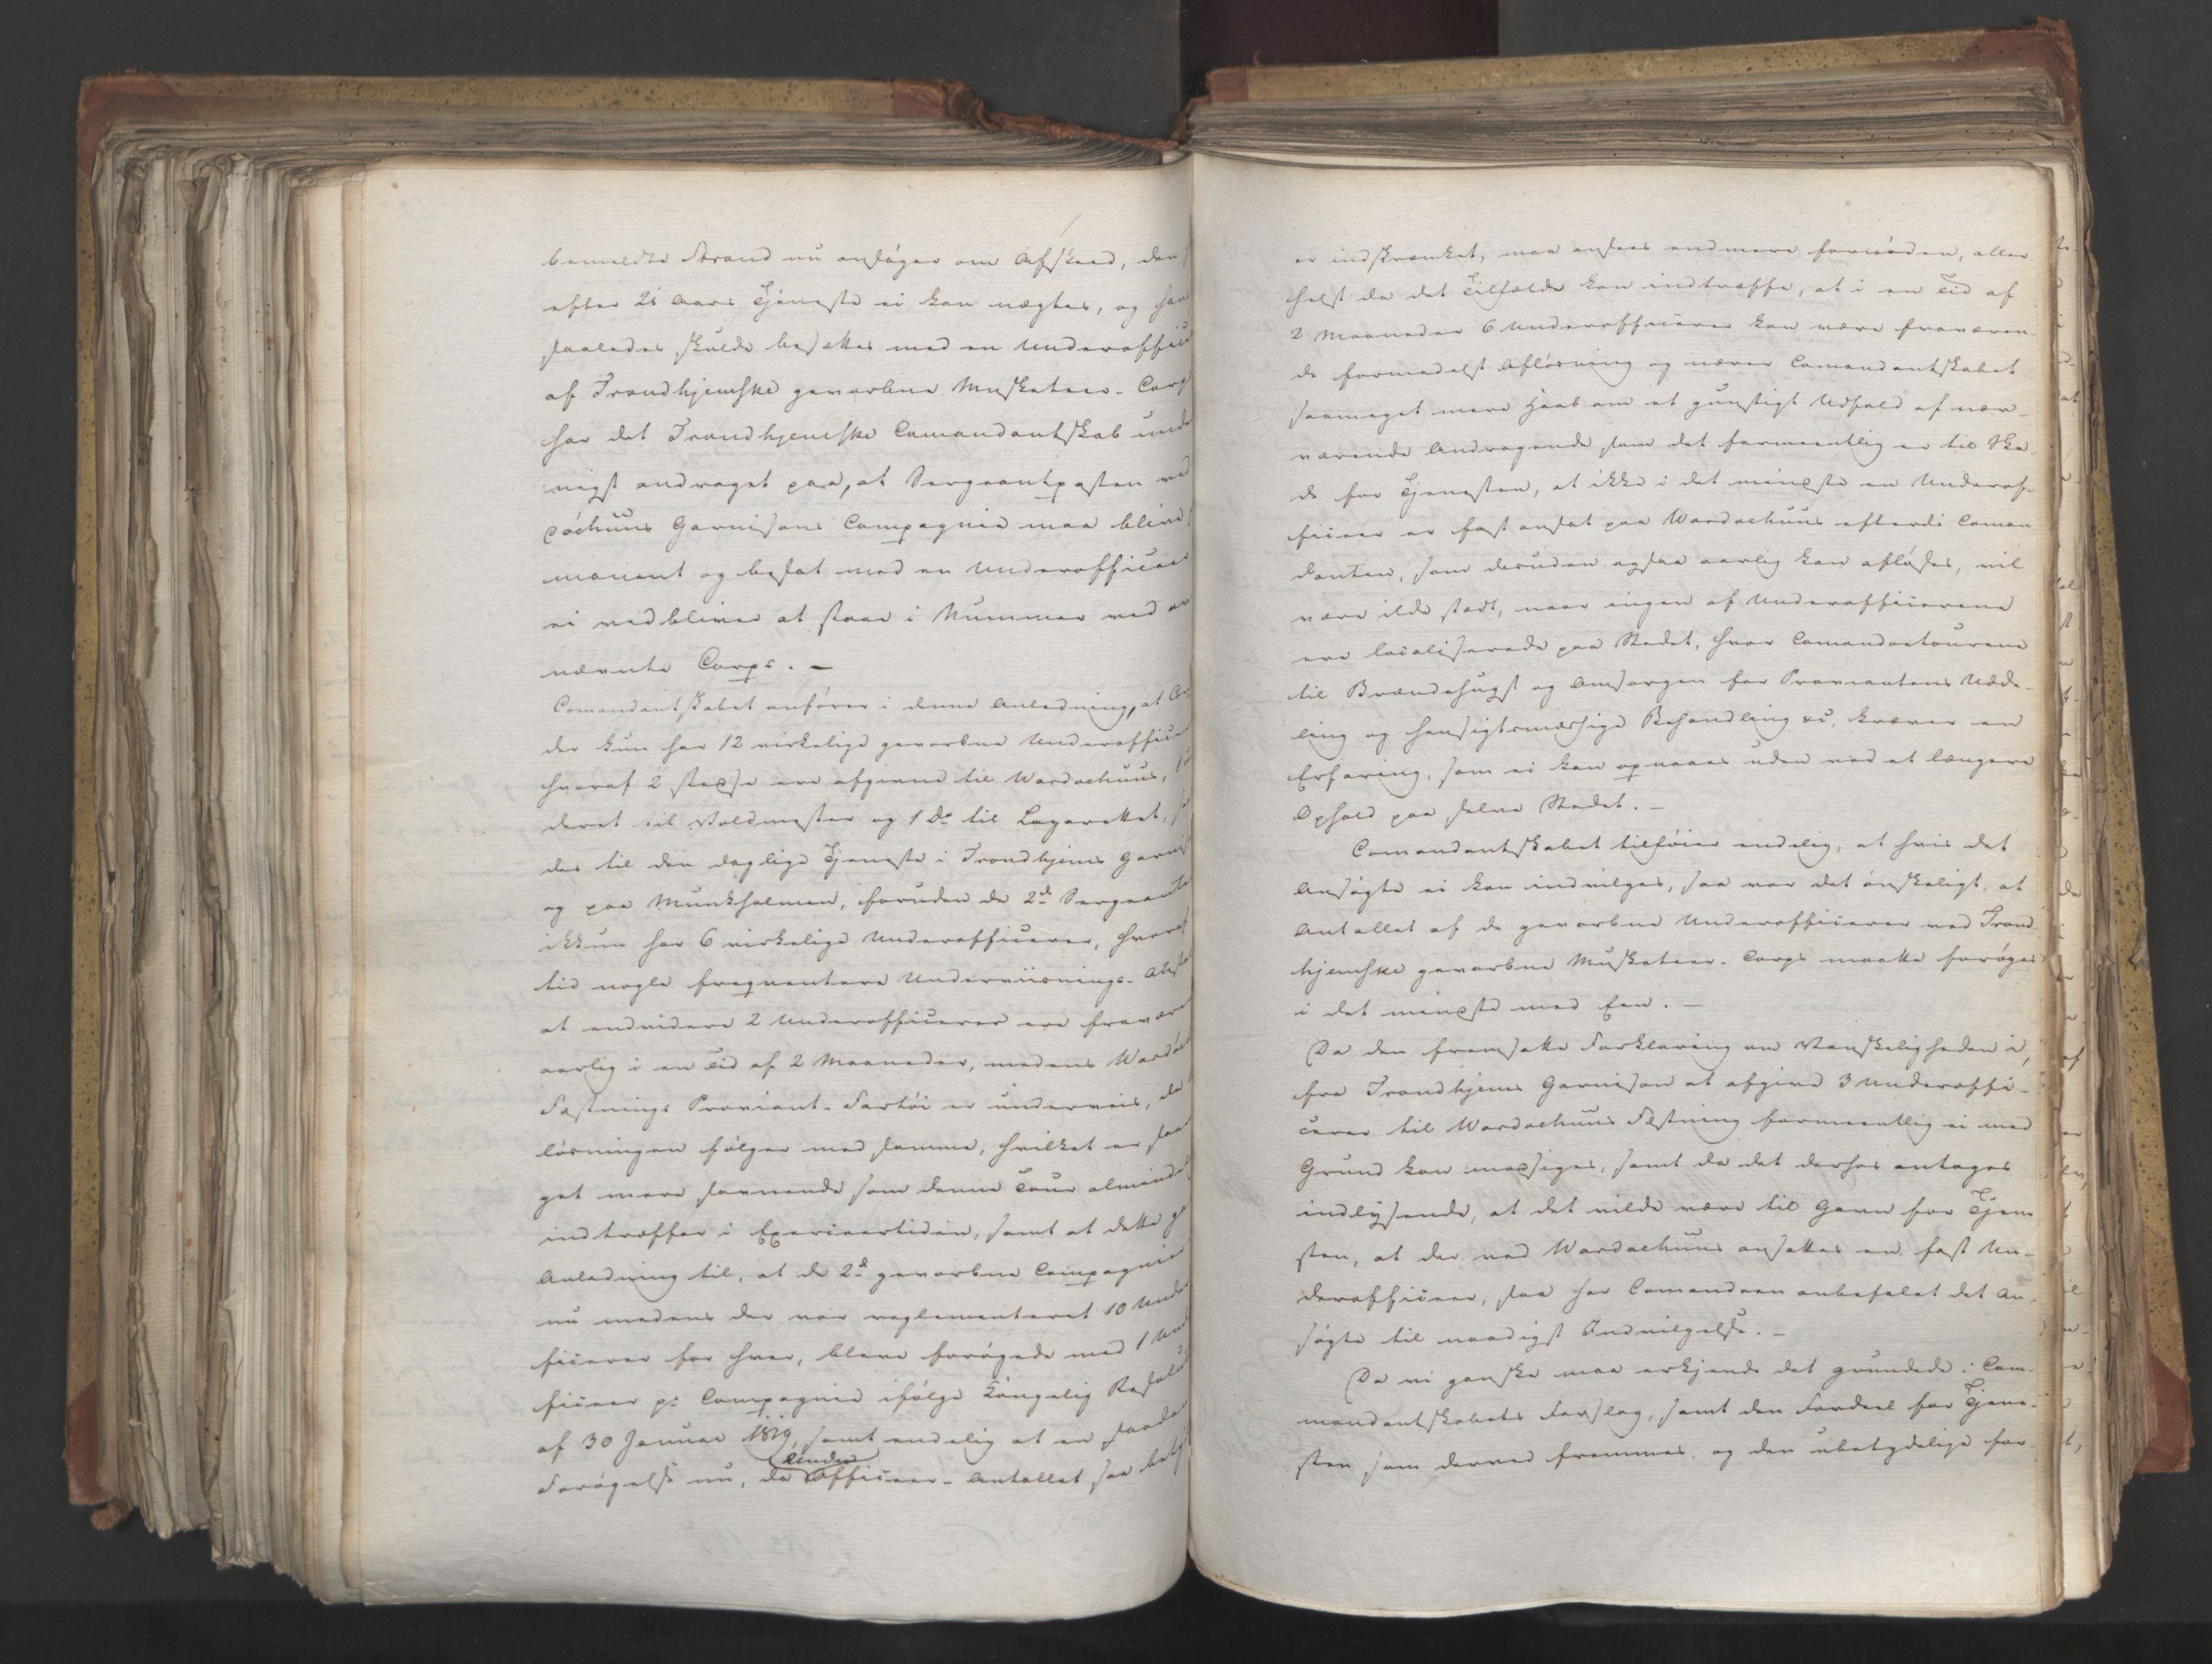 bemeldte Strand nu ansøger om Afskeed, den
efter 21 Aars Tjeneste ei kan nægtes, og han
saaledes skulde besættes med en Underoffici
af Trondhjemske gevorbne Musketeer-Corp
har det Trondhjemske Comandantskab unde
nigst andraget paa, at Sergeantposten ved
döehuus Garnisons Compagnie maa blive
manent og besat med en Underofficeer
ei vedbliver at staae i Nummer ved ov
nævnte Corps. -
Comandantskabet anfører i denne Anledning, at Cor
der kun har 12 virkelige gevorbne Underoffice
hvoraf 2 stedse ere afgivne til Wardoehuus,
deret til Voldmester og 1 Do til Lazarettet, sa
des til den daglige Tjeneste i Trondhjems Garnis
og paa Munkholmen, foruden de 2de Sergeante
ikkun har 6 virkelige Underofficerer, hvoraf
tid nogle freqventere Underviisnings-Anstal
at endvidere 2 Underofficerer ere fravære
aarlig i en Tid af 2 Maaneder, medens Wardöe
Fæstnings Proviant-Fartöi er underveis, da
løsningen følger med samme, hvilket er saa
get mere savnende som denne Tour almindel
indtræffer i Exerceertiden, samt at dette ga
Anledning til, at de 2de gevorbne Compagnie
nu medens der var reglementeret 10 Under
ficerer for hver, bleve forøgede med 1 Und
ficeer pr Compagnie ifølge Kongelig Resolut
af 30 Januar 1819, samt endelig at en saada
Forøgelse nu, da Under Officeer-Antallet saa bety
er indskrænket, maa ansees endmere fornøden, aller
helst da det Tilfælde kan indtræffe, at i en Tid af
2 Maaneder 6 Underofficerer kan være fraværen-
de formedelst Afløsning og nærer Comandantskabet
saameget mere Haab om et gunstigt Udfald af nær-
værende Andragende som det formeentlig er til Ska-
de for Tjenesten, at ikke i det mindste en Underof-
ficeer er fast ansat paa Wardoehuus efterdi Coman
danten, som desuden ogsaa aarlig kan afløses, vil
være ilde stedt, naar ingen af Underofficererne
ere localiserede paa Stedet, hvor Comandotourene
til Brændehugst og Omsorgen for Proviantens Udde-
ling og hensigtsmæssige Behandling &c. kræver en
Erfaring, som ei kan opnaaes uden ved et længere
Ophold paa selve Stedet. -
Comandantskabet tilføier endelig, at hvis det
Ansøgte ei kan indvilges, saa var det ønskeligt, at
Antallet af de gevorbne Underofficerer ved Trond
hjemske gevorbne Musketeer-Corps maatte forøges
i det mindste med Een. -
Da den fremsatte Forklaring om Vanskeligheden i,
fra Trondhjems Garnison at afgive 3 Underoffi-
cerer til Wardoehuus Fæstning formeentlig ei med
Grund kan modsiges, samt da det derhos antages
indlysende, at det vilde være til Gavn for Tjene
sten, at der ved Wardoehuus ansættes en fast Un-
derofficeer, saa har Comandoen anbefalet det An-
søgte til naadigst Indvilgelse. -
Da vi ganske maa erkjende det grundede i Com-
mandantskabets Forslag, samt den Fordeel for Tjene-
sten som derved fremmes, og den ubetydelige for-